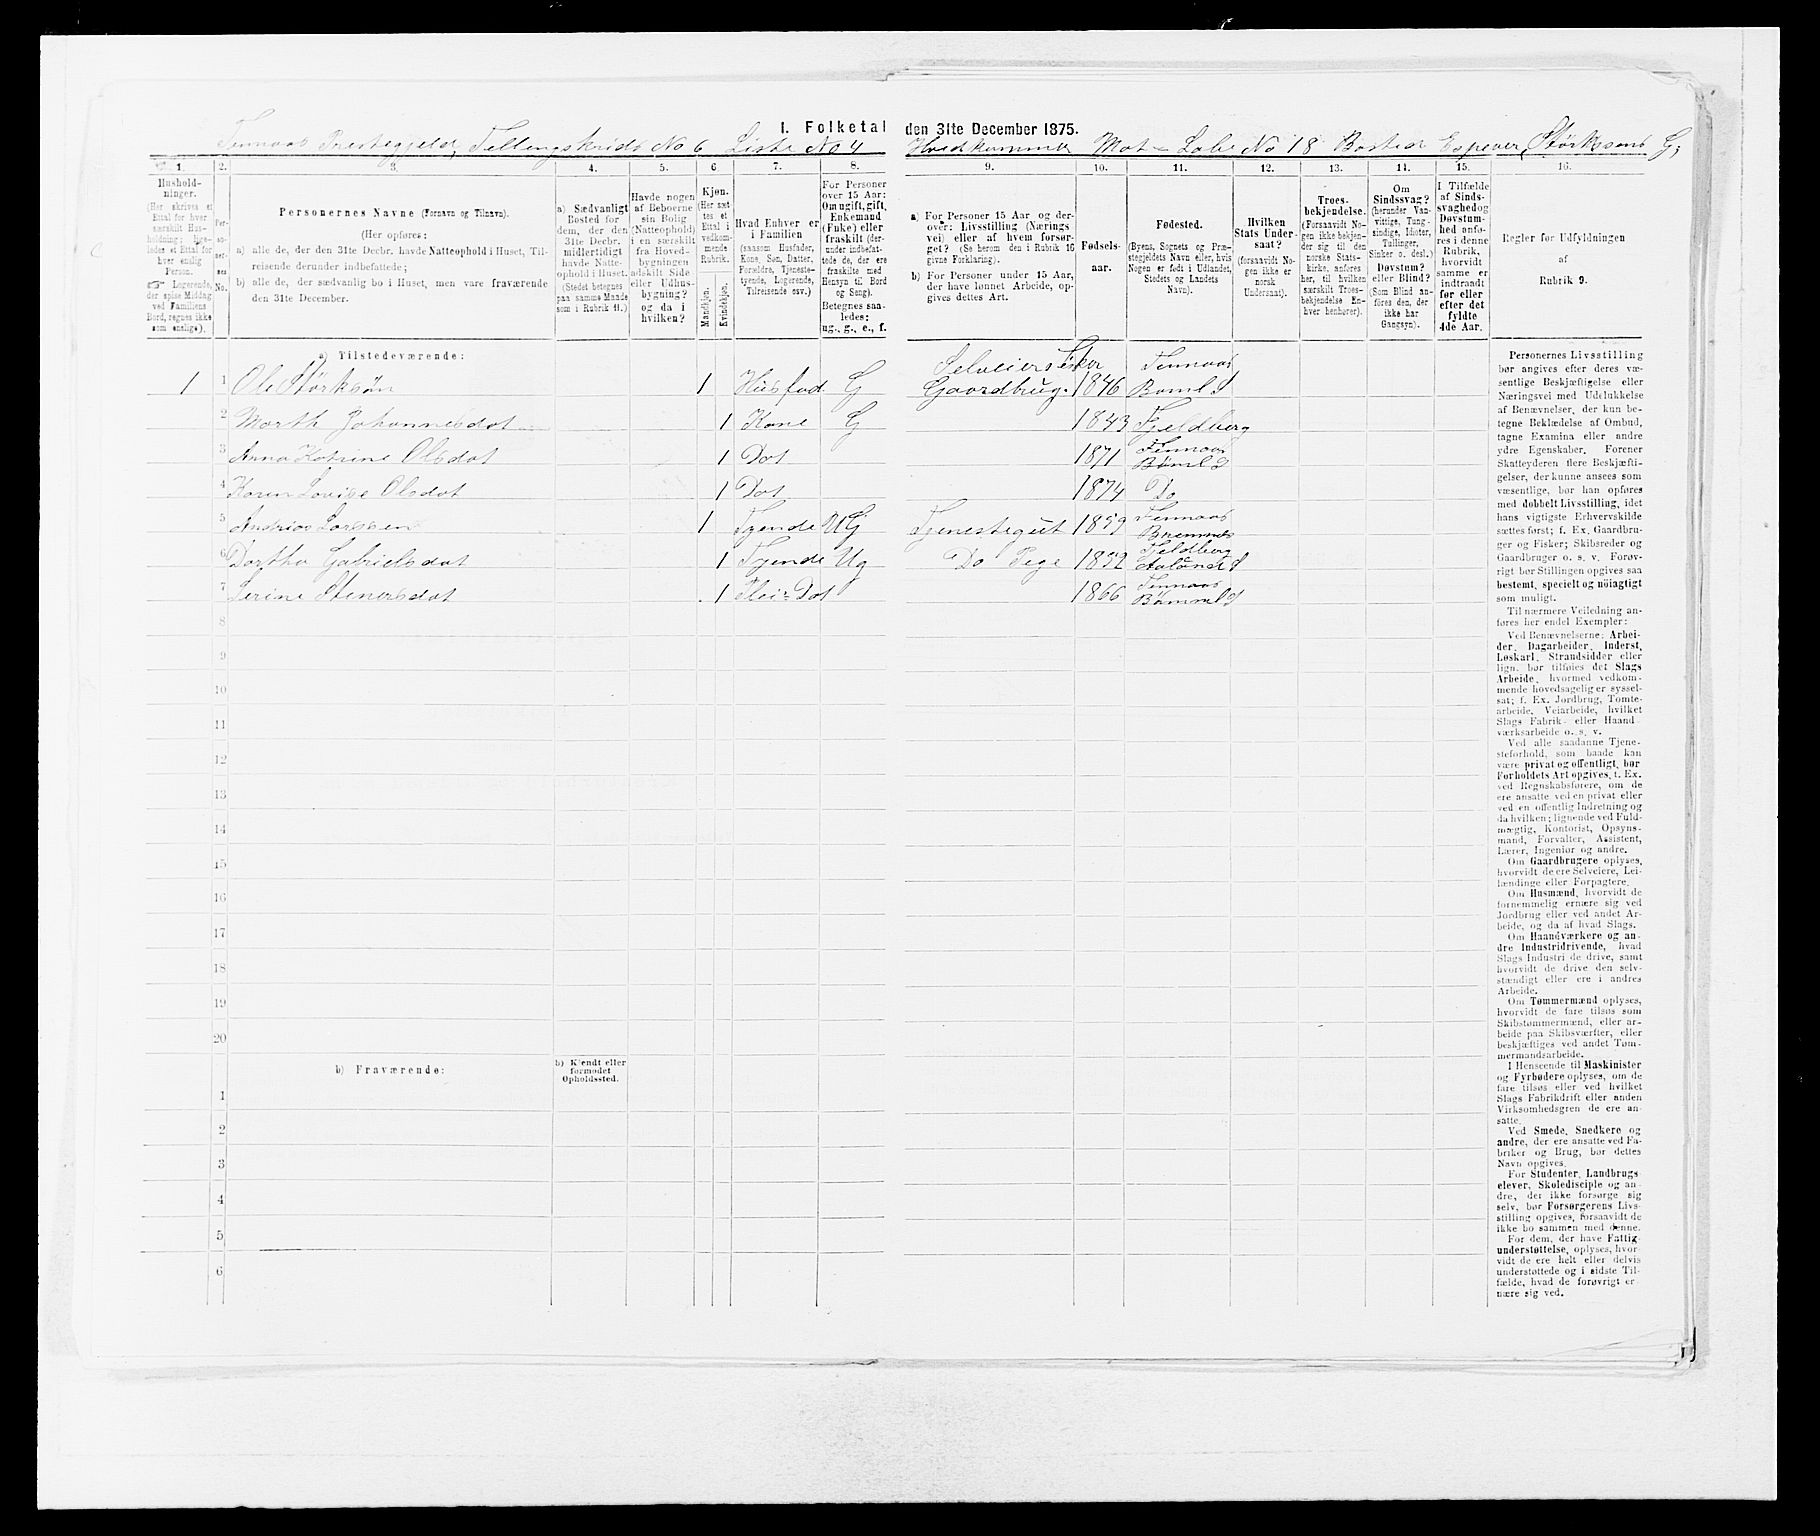 I. Folketal den 31te December 1875.
Fennaas Prestegjeld, Tellingskrids No 6 Liste No 4 Hvedkummer Mat-Løbe No 18 Bosted Espever, Størksens G;
1. 2. 3. 4. 5. 6. 7. 8. 9. 10. 11. 12. 13. 14. 15. 16.
Husholdninger.
(Her skrives et Ettal for hver særskilt Husholdning; ligeledes et Ettal for hver enlig Person.
☞ Logerende, der spise Middag ved Familiens Bord, regnes ikke som enslige).
Personernes No.
Personernes Navne (Fornavn og Tilnavn).
(Her opføres:
a) alle de, der den 31te Decbr. havde Natteophold i Huset, Tilreisende derunder indbefattede;
b) alle de, der sædvanlig bo i Huset, men vare fraværende den 31te December.
a) Sædvanligt Bosted for dem, der den 31te Decbr. midlertidigt havde Natteophold i Huset. (Stedet betegnes paa samme Maade som i Rubrik 11.)
Havde nogen af Beboerne sin Bolig (Natteophold) i en særskilt fra Hovedbygningen adskilt Side eller Udhusbygning? og da i hvilken?
Kjøn. (Her sættes et Ettal i vedkommende Rubrik.
Mandkjøn. Kvindekjøn.
Hvad Enhver er i Familien
(saasom Husfader, Kone, Søn, Datter, Forældre, Tjenestetyende, Logerende, Tilreisende osv.)
For Personer over 15 Aar: Om ugift, gift, Enkemand (Enke) eller fraskilt (derunder indbefattede de, der ere fraskilte med Hensyn til Bord og Seng). Betegnes saaledes: ug., g., e., f.
a) For Personer 15 Aar og derover: Livsstilling (Næringsvei) eller af hvem forsørget? (Se herom den i Rubrik 16 givne Forklaring).
b) For Personer under 15 Aar, der have lønnet Arbeide, opgives dettes Art.
Fødselsaar.
Fødested.
(Byens, Sognets og Præstegjeldets Navn eller, hvis Nogen er født i Udlandet, Stedets og Landets Navn).
Hvilken Stats Undersaat?
(forsaavidt Nogen ikke er norsk Undersaat).
Troesbekjendelse.
(Forsaavidt Nogen ikke bekjender sig til den norske Statskirke, anføres her, til hvilken særskilt Troesbekjendelse Enhver henhører).
Om Sindssvag? (herunder Vanvittige, Tungsindige, Idioter, Tullinger, Sinker o. desl.) Døvstum? eller Blind? (Som Blind anføres den, der ikke har Gangsyn).
I Tilfælde af Sindssvaghed og Døvstumhed anføres i denne Rubrik, hvorvidt samme er indtraadt før eller efter det fyldte 4de Aar.
Regler for Udfyldningen
af
Rubrik 9.
a) Tilstedeværende:
1 1 Ole Størksøn 1 Husfad G Selveier Fisker Gaardbrug. 1846 Fennaas Boml
2 Marth Johannesdat 1 Kone G 1843 Fjeldberg
3 Anna Katrine Olsdat 1 Dat 1871 Fennaas Bøml
4 Karen Lovise Olsdat 1 Dat 1874 Do
5 Andrias Larssen 1 Tyende UG Tjenestegut 1859 Fennaas Bremnes
6 Dortha Gabrielsdat 1 Tyende Ug Do Pege 1852 Fjeldberg
7 Serine Stenersdat 1 Plei-Dat 1866 Fennaas Bømmel
8
9
10
11
12
13
14
15
16
17
18
19
20
b) Fraværende: b) Kjendt eller formodet Opholdssted.
1
2
3
4
5
6
Personernes Livsstilling
bør angives efter deres væ-
sentlige Beskjæftigelse eller
Næringsvei med Udelukkelse
af Benævnelser, der kun be-
tegne Beklædelse af Ombud,
tagne Examina eller andre
ydre Egenskaber. Forener
Skatteyderen flere Beskjæfti-
gelser, der kunne ansees som
væsentlige, bør han opføres
med dobbelt Livsstilling, idet
hans vigtigste Erhvervskilde
sættes først; f. Ex. Gaardbru-
ger og Fisker; Skibsreder og
Gaardbruger o. s. v. Forøv-
rigt bør Stillingen opgives saa
bestemt, specielt og nøiagtigt
som muligt.
Til nærmere Veiledning an-
føres her endel Exempler:
Ved Benævnelserne: Arbei-
der, Dagarbeider, Inderst,
Løskarl, Strandsidder eller
lign. bør tilføies det Slags
Arbeide, hvormed vedkom-
mende hovedsagelig er syssel-
sat; f. Ex. Jordbrug, Tomte-
arbeide, Veiarbeide, hvilket
Slags Fabrik- eller Haand-
værksarbeide o. s. v.
Ved alle saadanne Tjene-
steforhold, som baade kan
være privat og offentligt, bør
Forholdets Art opgives, t. Ex.
ved Regnskabsførere, om de
ere ansatte ved en privat eller
ved en offentlig Indretning og
da hvilken; lignende ved Fuld-
mægtig, Kontorist, Opsyns-
mand, Forvalter, Assistent,
Lærer, Ingeniør og andre.
Om Gaardbrugere oplyses,
hvorvidt de ere Selveiere, Lei-
lændinge eller Forpagtere.
Om Husmænd, hvorvidt de
fornemmelig ernære sig ved
Jordbrug eller ved andet Ar-
beide, og da af hvad Slags.
Om Haandværkere og an-
dre Industridrivende, hvad
Slags Industri de drive, samt
hvorvidt de drive den selv-
stændigt eller ere i andres
Arbeide.
Om Tømmermænd oplyses,
hvorvidt de fare tilsøs som
Skibstømmermænd, eller ar-
beide paa Skibsværfter, eller
beskjæftiges ved andet Tøm-
mermandsarbeide.
I Henseende til Maskinister
og Fyrbødere oplyses, om de
fare tilsøs eller ved hvilket
Slags Fabrikdrift eller anden
Virksomhedsgren de ere an-
satte.
Ved Smede, Snedkere og
andre, der ere ansatte ved Fa-
briker og Brug, bør dettes
Navn opgives.
For Studenter, Landbrugs-
elever, Skoledisciple og an-
dre, der ikke forsørge sig
selv, bør Forsørgerens Livs-
stilling opgives, forsaavidt de
ikke bo sammen med denne.
For dem, der have Fattig-
understøttelse, oplyses, hvor-
vidt de ere helt eller delvis
understøttede og i sidste Til-
fælde, hvad de forøvrigt er-
nære sig ved.